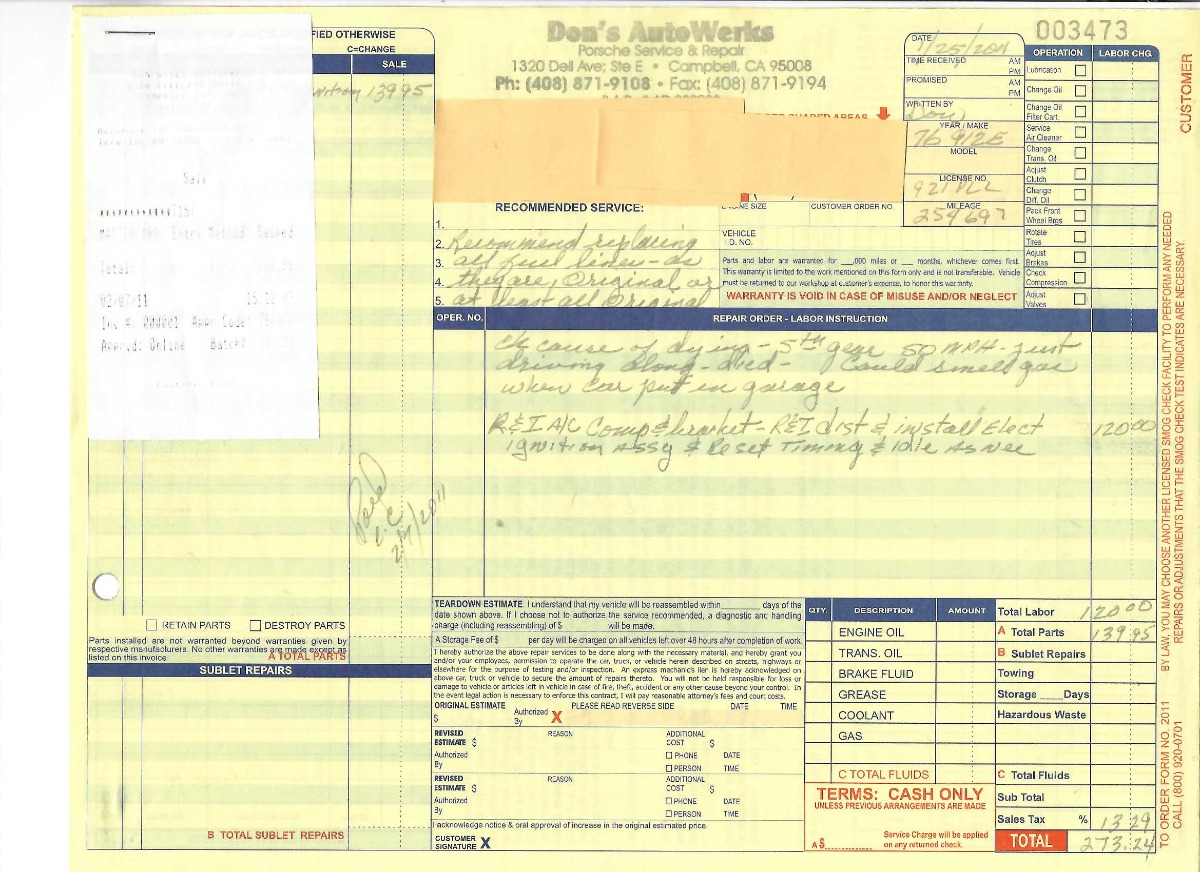 Don's AutoWerks
Porsche Service & Repair
1320 Dell Ave; Ste E • Campbell, CA 95008
Ph: (408) 871-9108 • Fax: (408) 871-9194
003473
FIED OTHERWISE
C=CHANGE
SALE
139.95
Sale
Total:
02/07/11 15:12
Inv #: 000001 Appr Code:
Apprvd: Online Batch#
DATE 1/25/2011
TIME RECEIVED AM PM
PROMISED AM PM
WRITTEN BY Don
YEAR / MAKE
76 912E
MODEL
LICENSE NO.
MILEAGE
254697
OPERATION LABOR CHG.
Lubrication
Change Oil
Change Oil Filter Cart.
Service Air Cleaner
Change Trans. Oil
Adjust Clutch
Change Diff. Oil
Pack Front Wheel Brgs.
Rotate Tires
Adjust Brakes
Check Compression
Adjust Valves
CUSTOMER
RECOMMENDED SERVICE:
1.
2. Recommend replacing
3. all fuel lines - as
4. they are, Original or
5. at least all Original
ENGINE SIZE CUSTOMER ORDER NO.
VEHICLE I.D. NO.
Parts and labor are warranted for ___,000 miles or ___ months, whichever comes first.
This warranty is limited to the work mentioned on this form only and is not transferable. Vehicle
must be returned to our workshop at customer's expense, to honor this warranty.
WARRANTY IS VOID IN CASE OF MISUSE AND/OR NEGLECT
OPER. NO. REPAIR ORDER - LABOR INSTRUCTION
ck cause of dying - 5th gear 50 MPH - just
driving along - died - Could smell gas
when car put in garage
R&I A/C Comp & bracket - R&I dist & install Elect 120 00
ignition Assy & Reset Timing & Idle As nec
Paid
2/7/2011
RETAIN PARTS DESTROY PARTS
Parts installed are not warranted beyond warranties given by
respective manufacturers. No other warranties are made except as
listed on this invoice
A TOTAL PARTS
SUBLET REPAIRS
B TOTAL SUBLET REPAIRS
TEARDOWN ESTIMATE: I understand that my vehicle will be reassembled within________ days of the
date shown above. If I choose not to authorize the service recommended, a diagnostic and handling
charge (including reassembling) of $ ________ will be made.
A Storage Fee of $ ________ per day will be charged on all vehicles left over 48 hours after completion of work.
I hereby authorize the above repair services to be done along with the necessary material, and hereby grant you
and/or your employees, permission to operate the car, truck, or vehicle herein described on streets, highways or
elsewhere for the purpose of testing and/or inspection. An express mechanic's lien is hereby acknowledged on
above car, truck or vehicle to secure the amount of repairs thereto. You will not be held responsible for loss or
damage to vehicle or articles left in vehicle in case of fire, theft, accident or any other cause beyond your control. In
the event legal action is necessary to enforce this contract, I will pay reasonable attorney's fees and court costs.
ORIGINAL ESTIMATE PLEASE READ REVERSE SIDE DATE TIME
$ Authorized By X
REVISED ESTIMATE $ REASON ADDITIONAL COST $
Authorized By PHONE DATE
PERSON TIME
REVISED ESTIMATE $ REASON ADDITIONAL COST $
Authorized By PHONE DATE
PERSON TIME
I acknowledge notice & oral approval of increase in the original estimated price.
CUSTOMER SIGNATURE X
QTY. DESCRIPTION AMOUNT
ENGINE OIL
TRANS. OIL
BRAKE FLUID
GREASE
COOLANT
GAS
C TOTAL FLUIDS
TERMS: CASH ONLY
UNLESS PREVIOUS ARRANGEMENTS ARE MADE
A $ Service Charge will be applied
on any returned check.
Total Labor 120 00
A Total Parts 139.95
B Sublet Repairs
Towing
Storage ____Days
Hazardous Waste
C Total Fluids
Sub Total
Sales Tax % 13 29
TOTAL 273.24
BY LAW, YOU MAY CHOOSE ANOTHER LICENSED SMOG CHECK FACILITY TO PERFORM ANY NEEDED
REPAIRS OR ADJUSTMENTS THAT THE SMOG CHECK TEST INDICATES ARE NECESSARY.
TO ORDER FORM NO. 2011
CALL (800) 920-0701